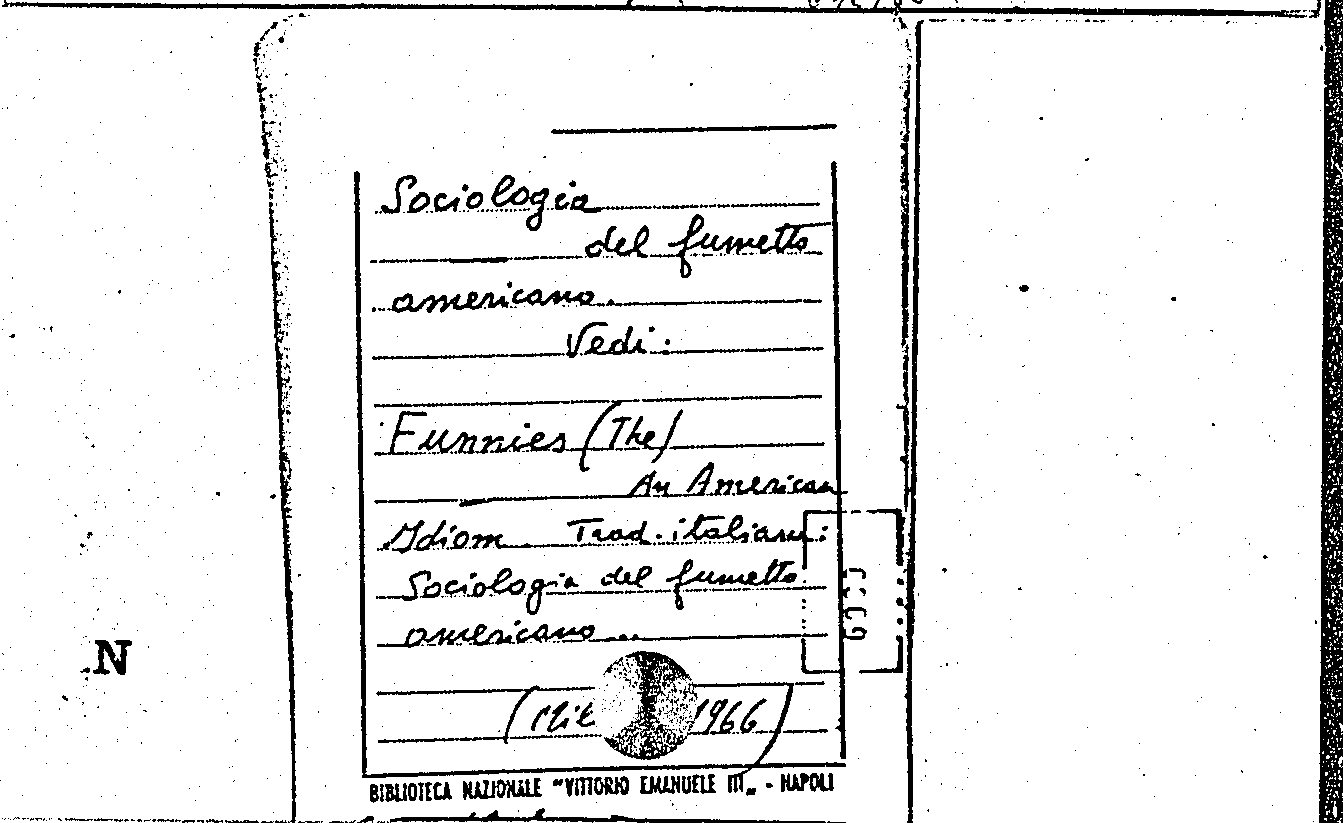 Sociologia
del fumetto
americano.
Vedi:
Funnies (The)
An American
Idiom. Trad. italiana:
Sociologia del fumetto
americano...
( 1966)
BIBLIOTECA NAZIONALE "VITTORIO EMANUELE III" - NAPOLI
N